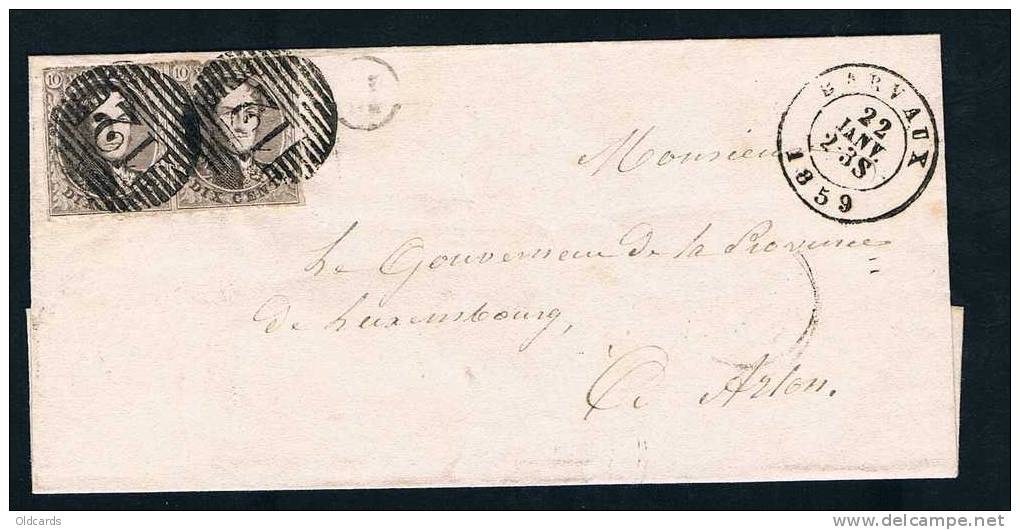 10
10
DIX CENT
BARVAUX
22
JANV.
2-3S
1859
Monsieur
Le Gouverneur de la Province
de Luxembourg,
à Arlon.
Oldcards
www.delcampe.net